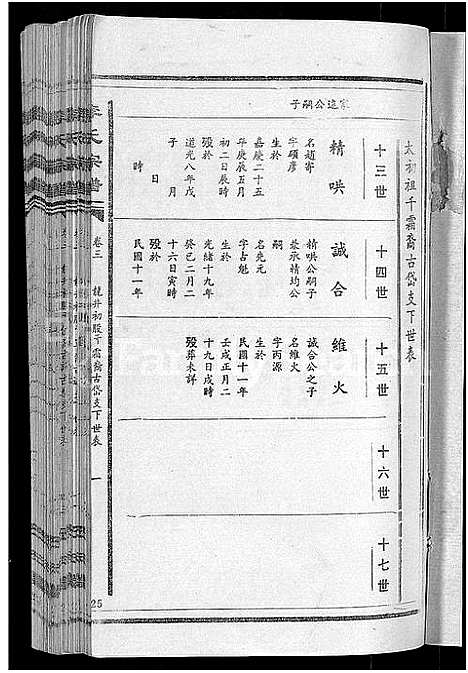 太初祖千霜裔古岱支下世表
十三世
十四世
十五世
十六世
十七世
家進公嗣子
精哄
名趙寄
字碩彥
生於
嘉慶二十五
年庚辰五月
初二日辰時
歿於
道光八年戊
子 月
日
時
誠合
精哄公嗣子
兼承精均公
嗣
名堯元
字占魁
生於
光緒十九年
癸巳二月二
十六日寅時
歿於
民國十一年
維火
誠合公之子
名維火
字丙源
生於
民國十一年
壬戌正月二
十九日戌時
歿葬未詳
李氏宗譜
卷三
龍井初股千霜裔古岱支下世表
一
25